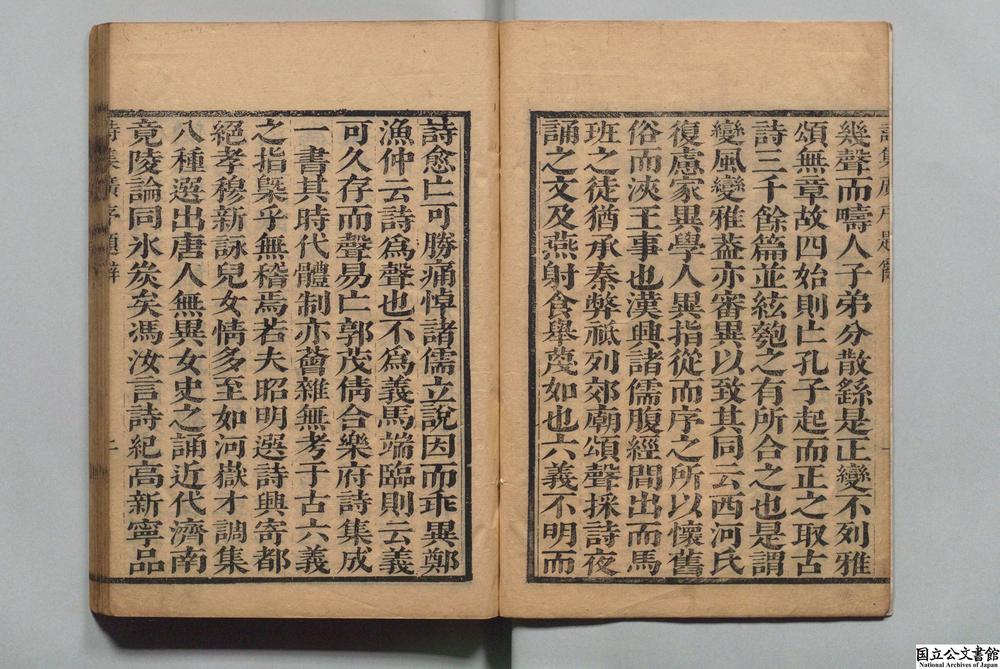 幾聲而疇人子弟分散繇是正變不列雅
頌無章故四始則亡孔子起而正之取古
詩三千餘篇並絃匏之有所合之也是謂
變風變雅葢亦審異以致其同云西河氏
復慮家異學人異指從而序之所以懷舊
俗而浹王事也漢興諸儒腹經間出而馬
班之徒猶承秦弊祗列郊廟頌聲採詩夜
誦之文及燕射食舉蔑如也六義不明而
詩愈亡可勝痛悼諸儒立說因而乖異鄭
漁仲云詩爲聲也不爲義馬端臨則云義
可久存而聲易亡郭茂倩合樂府詩集成
一書其時代體制亦薈雜無考于古六義
之指槩乎無稽焉若夫昭明選詩興寄都
絕孝穆新詠兒女情多至如河嶽才調集
八種選出唐人無異女史之誦近代濟南
竟陵論同氷炭矣馮汝言詩紀高新寧品
詩集廣序題解
国立公文書館
National Archives of Japan